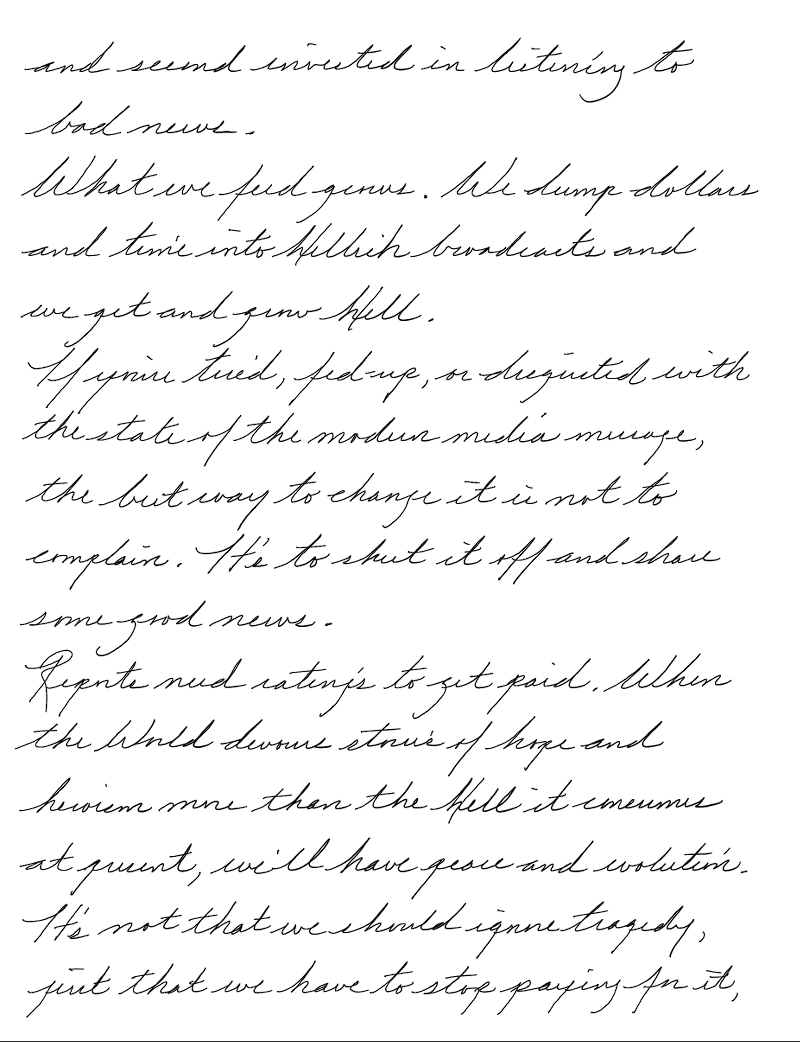 and second invested in listening to
bad news.
What we feed grows. We dump dollars
and time into Hellish broadcasts and
we get and grow Hell.
If you're tired, fed-up, or disgusted with
the state of the modern media message,
the best way to change it is not to
complain. It's to shut it off and share
some good news.
Reports need ratings to get paid. When
the World devours stories of hope and
heroism more than the Hell it consumes
at present, we'll have peace and evolution.
It's not that we should ignore tragedy,
just that we have to stop paying for it,